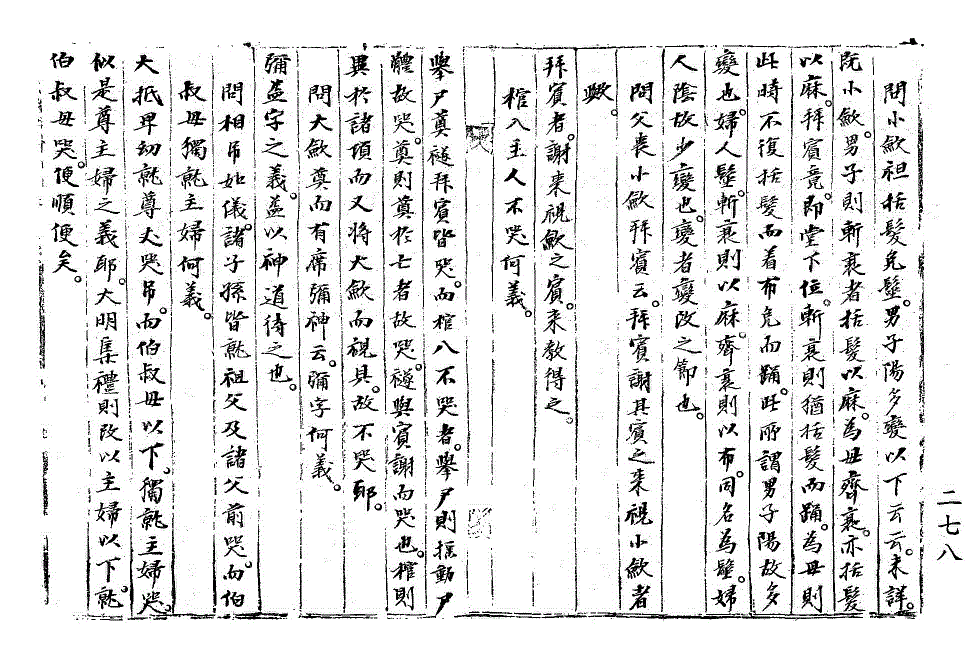 問小斂袒括髮免髽。男子陽多變以下云云。未詳。
既小斂。男子則斬衰者括髮以麻。為母齊衰。亦括髮
以麻。拜賓竟。即堂下位。斬衰則猶括髮而踊。為母則
此時不復括髮而着布免而踊。此所謂男子陽故多
變也。婦人髽。斬衰則以麻。齊衰則以布。同名為髽。婦
人陰故少變也。變者變改之節也。
問父喪小斂拜賓云。拜賓謝其賓之來視小斂者
歟。
拜賓者。謝來視斂之賓。來教得之。
棺入主人不哭何義。
擧尸奠襚拜賓皆哭。而棺入不哭者。擧尸則搖動尸
體故哭。奠則奠於亡者故哭。襚與賓謝而哭也。棺則
異於諸項而又將大斂而視具。故不哭耶。
問大斂奠而有席彌神云。彌字何義。
彌盖字之義。盖以神道待之也。
問相吊如儀。諸子孫皆就祖父及諸父前哭。而伯
叔母獨就主婦何義。
大抵卑幼就尊丈哭吊。而伯叔母以下。獨就主婦哭。
似是尊主婦之義耶。大明集禮則改以主婦以下。就
伯叔母哭。便順便矣。
二七八